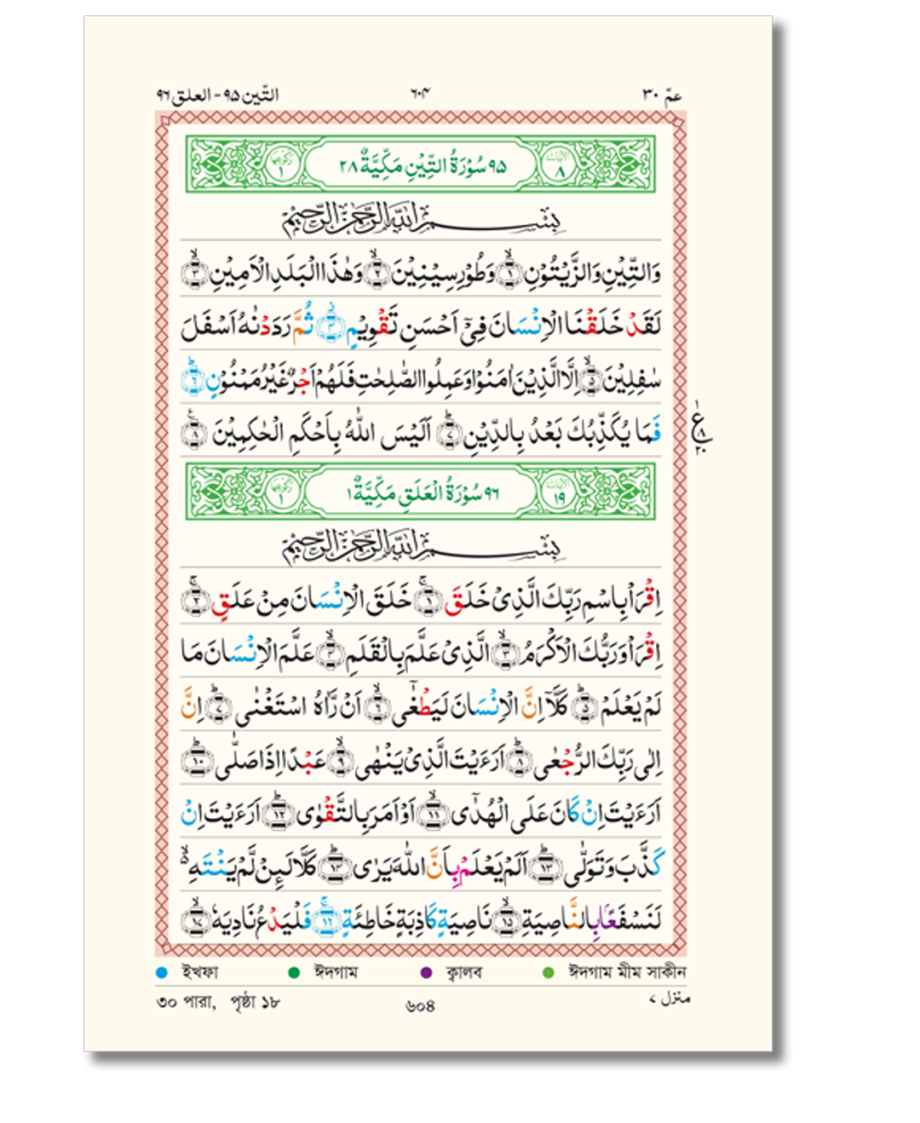 عمّ ٣٠
٦٠٤
التّين ٩٥ - العلق ٩٦
اٰیاتها ٨
٩٥ سُوْرَةُ التِّيْنِ مَكِّيَّةٌ ٢٨
ركوعها ١
بِسْمِ اللّٰهِ الرَّحْمٰنِ الرَّحِيْمِ
وَالتِّيْنِ وَالزَّيْتُوْنِ ۙ﴿١﴾ وَطُوْرِ سِيْنِيْنَ ۙ﴿٢﴾ وَهٰذَا الْبَلَدِ الْاَمِيْنِ ۙ﴿٣﴾
لَقَدْ خَلَقْنَا الْاِنْسَانَ فِيْٓ اَحْسَنِ تَقْوِيْمٍ ۫﴿٤﴾ ثُمَّ رَدَدْنٰهُ اَسْفَلَ
سٰفِلِيْنَ ۙ﴿٥﴾ اِلَّا الَّذِيْنَ اٰمَنُوْا وَعَمِلُوا الصّٰلِحٰتِ فَلَهُمْ اَجْرٌ غَيْرُ مَمْنُوْنٍ ؕ﴿٦﴾
فَمَا يُكَذِّبُكَ بَعْدُ بِالدِّيْنِ ؕ﴿٧﴾ اَلَيْسَ اللّٰهُ بِاَحْكَمِ الْحٰكِمِيْنَ ﴿٨﴾
ع ٨ ٢٠
اٰیاتها ١٩
٩٦ سُوْرَةُ الْعَلَقِ مَكِّيَّةٌ ١
ركوعها ١
بِسْمِ اللّٰهِ الرَّحْمٰنِ الرَّحِيْمِ
اِقْرَاْ بِاسْمِ رَبِّكَ الَّذِيْ خَلَقَ ۚ﴿١﴾ خَلَقَ الْاِنْسَانَ مِنْ عَلَقٍ ۚ﴿٢﴾
اِقْرَاْ وَرَبُّكَ الْاَكْرَمُ ۙ﴿٣﴾ الَّذِيْ عَلَّمَ بِالْقَلَمِ ۙ﴿٤﴾ عَلَّمَ الْاِنْسَانَ مَا
لَمْ يَعْلَمْ ؕ﴿٥﴾ كَلَّآ اِنَّ الْاِنْسَانَ لَيَطْغٰٓى ۙ﴿٦﴾ اَنْ رَّاٰهُ اسْتَغْنٰى ؕ﴿٧﴾ اِنَّ
اِلٰى رَبِّكَ الرُّجْعٰى ؕ﴿٨﴾ اَرَءَيْتَ الَّذِيْ يَنْهٰى ۙ﴿٩﴾ عَبْدًا اِذَا صَلّٰى ؕ﴿١٠﴾
اَرَءَيْتَ اِنْ كَانَ عَلَى الْهُدٰٓى ۙ﴿١١﴾ اَوْ اَمَرَ بِالتَّقْوٰى ؕ﴿١٢﴾ اَرَءَيْتَ اِنْ
كَذَّبَ وَتَوَلّٰى ؕ﴿١٣﴾ اَلَمْ يَعْلَمْ بِاَنَّ اللّٰهَ يَرٰى ؕ﴿١٤﴾ كَلَّا لَئِنْ لَّمْ يَنْتَهِ ۙ۬
لَنَسْفَعًۢا بِالنَّاصِيَةِ ۙ﴿١٥﴾ نَاصِيَةٍ كَاذِبَةٍ خَاطِئَةٍ ۚ﴿١٦﴾ فَلْيَدْعُ نَادِيَهٗ ۙ﴿١٧﴾
ইখফা ঈদগাম ক্বালব ঈদগাম মীম সাকীন
৩০ পারা, পৃষ্ঠা ১৮
৬০৪
منزل ٧